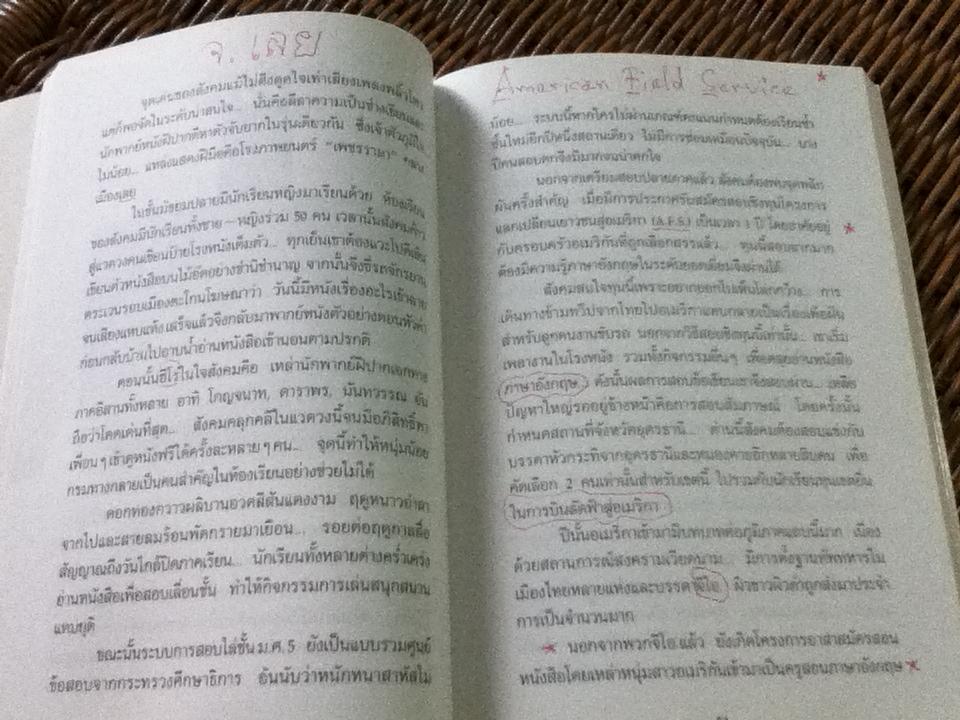 จ. เลย
จุดเด่นของสังคมแม้ไม่ดึงดูดใจเท่าเสียงเพลงพลิ้วไหว
แต่ก็พอจัดในระดับน่าสนใจ... นั่นคือลีลาความเป็นช่างเขียนและ
นักพากย์หนังฝีปากดีหาตัวจับยากในรุ่นเดียวกัน ซึ่งเจ้าตัวภูมิใจ
ไม่น้อย... แหล่งแสดงฝีมือคือโรงภาพยนตร์ "เพชรรามา"
เมืองเลย
ในชั้นมัธยมปลายมีนักเรียนหญิงมาเรียนด้วย ห้องเรียน
ของสังคมมีนักเรียนทั้งชาย–หญิงร่วม 50 คน เวลานั้นสังคมก้าว
สู่แวดวงคนเขียนป้ายโรงหนังเต็มตัว... ทุกเย็นเขาต้องแวะไปตีเส้น
เขียนตัวหนังสือบนไม้อัดอย่างชำนิชำนาญ จากนั้นจึงขี่รถจักรยาน
ตระเวนรอบเมืองตะโกนโฆษณาว่า วันนี้มีหนังเรื่องอะไรเข้าฉาย
จนเสียงแหบแห้ง เสร็จแล้วจึงกลับมาพากย์หนังตัวอย่างตอนหัวค่ำ
ก่อนกลับบ้านไปอาบน้ำอ่านหนังสือเข้านอนตามปรกติ
ตอนนั้นฮีโร่ในใจสังคมคือ เหล่านักพากย์ฝีปากเอกทาง
ภาคอีสานทั้งหลาย อาทิ โกญจนาท, ดาราพร, มันทวรรณ อัน
ถือว่าโดดเด่นที่สุด... สังคมคลุกคลีในแวดวงนี้จนมีอภิสิทธิ์พา
เพื่อนๆ เข้าดูหนังฟรีได้ครั้งละหลายๆ คน... จุดนี้ทำให้หนุ่มน้อย
กรมทางกลายเป็นคนสำคัญในห้องเรียนอย่างช่วยไม่ได้
ดอกทองกวาวผลิบานอวดสีสันแดงงาม ฤดูหนาวอำลา
จากไปและสายลมร้อนพัดกรายมาเยือน... รอยต่อฤดูกาลสื่อ
สัญญาณถึงวันใกล้ปิดภาคเรียน... นักเรียนทั้งหลายต่างคร่ำเคร่ง
อ่านหนังสือเพื่อสอบเลื่อนชั้น ทำให้กิจกรรมการเล่นสนุกสนาน
แทบยุติ
ขณะนั้นระบบการสอบไล่ชั้น ม.ศ. 5 ยังเป็นแบบรวมศูนย์
ข้อสอบจากกระทรวงศึกษาธิการ อันนับว่าหนักหนาสาหัสไม่
American Field Service
น้อย... ระบบนี้หากใครไม่ผ่านเกณฑ์คะแนนกำหนดต้องเรียนซ้ำ
ชั้นใหม่อีกปีหนึ่งสถานเดียว ไม่มีการซ่อมเหมือนปัจจุบัน... บาง
ปีคนสอบตกจึงมีมากจนน่าตกใจ
นอกจากเตรียมสอบปลายภาคแล้ว สังคมต้องพบจุดพลิก
ผันครั้งสำคัญ เมื่อมีการประกาศรับสมัครสอบชิงทุนโครงการ
แลกเปลี่ยนเยาวชนสู่อเมริกา (A.F.S.) เป็นเวลา 1 ปี โดยอาศัยอยู่
กับครอบครัวอเมริกันที่ถูกเลือกสรรแล้ว... ทุนนี้สอบยากมาก
ต้องมีความรู้ภาษาอังกฤษในระดับยอดเยี่ยมจึงผ่านได้
สังคมสนใจทุนนี้เพราะอยากออกไปเห็นโลกกว้าง... การ
เดินทางข้ามทวีปจากไทยไปอเมริกาแทบกลายเป็นเรื่องเพ้อฝัน
สำหรับลูกคนงานขับรถ นอกจากวิธีสอบชิงทุนนี้เท่านั้น... เขาเริ่ม
เพลางานในโรงหนัง รวมทั้งกิจกรรมอื่นๆ เพื่อคอยอ่านหนังสือ
ภาษาอังกฤษ ดังนั้นผลการสอบข้อเขียนเขาจึงสอบผ่าน... เหลือ
ปัญหาใหญ่รออยู่ข้างหน้าคือการสอบสัมภาษณ์ โดยครั้งนั้น
กำหนดสถานที่จังหวัดอุดรธานี... ด่านนี้สังคมต้องสอบแข่งกับ
บรรดาหัวกระทิจากอุดรธานีและหนองคายอีกหลายสิบคน เพื่อ
คัดเลือก 2 คนเท่านั้นสำหรับเขตนี้ ไปรวมกับนักเรียนทุนเขตอื่น
ในการบินลัดฟ้าสู่อเมริกา
ปีนั้นอเมริกาเข้ามามีบทบาทต่อภูมิภาคแถบนี้มาก เนื่อง
ด้วยสถานการณ์สงครามเวียดนาม... มีการตั้งฐานทัพทหารใน
เมืองไทยหลายแห่งและบรรดาจีไอ ผิวขาวผิวดำถูกส่งมาประจำ
การเป็นจำนวนมาก
นอกจากพวกจีไอแล้ว ยังเกิดโครงการอาสาสมัครสอน
หนังสือโดยเหล่าหนุ่มสาวอเมริกันเข้ามาเป็นครูสอนภาษาอังกฤษ